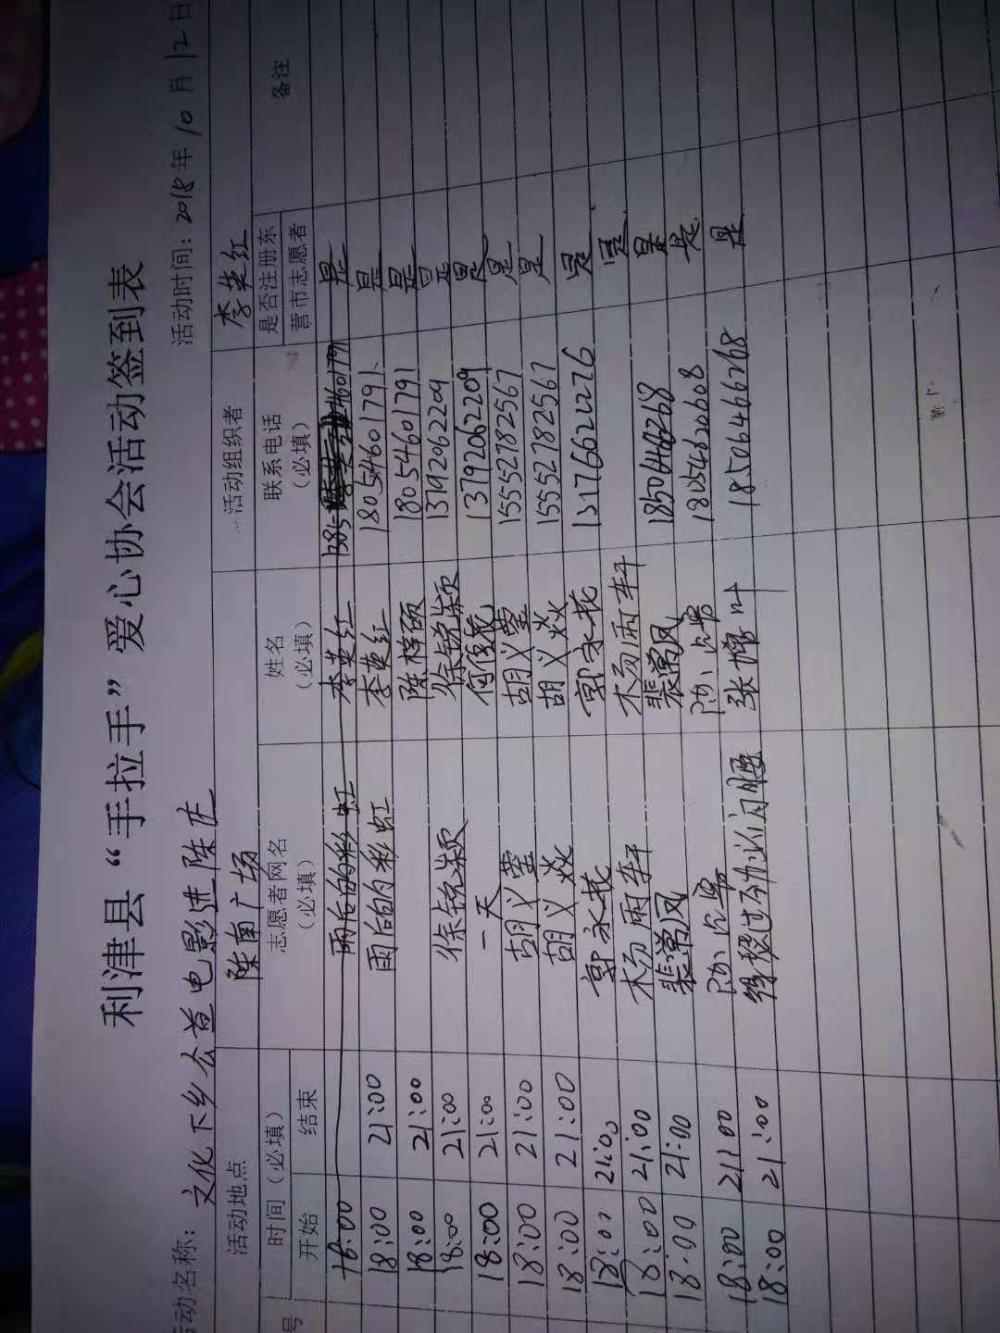 利津县“手拉手”爱心协会活动签到表
活动名称：文化下乡公益电影进陈庄 活动时间：2018年10月12日
活动地点 陈南广场 活动组织者 李英红
号 时间（必填） 志愿者网名（必填） 姓名（必填） 联系电话（必填） 是否注册东营市志愿者 备注
开始 结束
18:00 雨后的彩虹 李英红 是
18:00 21:00 雨后的彩虹 李英红 18054601791 是
18:00 21:00 陈梓硕 18054601791 是
18:00 21:00 徐锐颖 徐锐颖 13792062209 是
18:00 21:00 一天 13792062209 是
18:00 21:00 胡义莹 胡义莹 15552182567 是
18:00 21:00 胡义焱 胡义焱 15552182567 是
18:00 21:00 郭永花 郭永花 是
18:00 21:00 杨雨轩 杨雨轩 是
18:00 21:00 裴常凤 裴常凤 18506466268 是
18:00 21:00 18054620608 是
18:00 21:00 18506466268 是